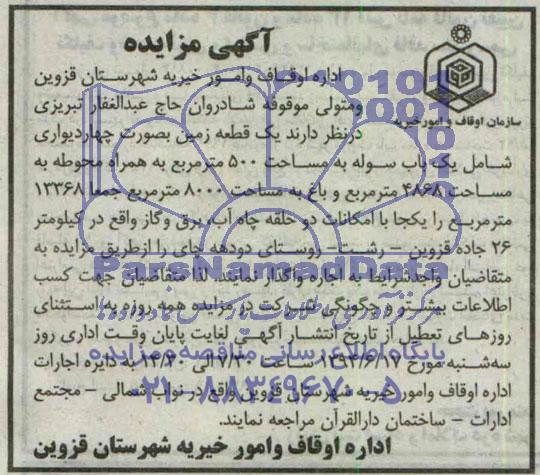 آگهی مزایده
سازمان اوقاف و امور خیریه
اداره اوقاف وامور خیریه شهرستان قزوین
ومتولی موقوفه شادروان حاج عبدالغفار تبریزی
درنظر دارند یک قطعه زمین بصورت چهاردیواری
شامل یک باب سوله به مساحت ۵۰۰ مترمربع به همراه محوطه به
مساحت ۴۸۶۸ مترمربع و باغ به مساحت ۸۰۰۰ مترمربع جمعا ۱۳۳۶۸
مترمربع را یکجا با امکانات دو حلقه چاه آب، برق وگاز واقع در کیلومتر
۲۶ جاده قزوین – رشت– روستای دودهه جای را ازطریق مزایده به
متقاضیان واجدشرایط به اجاره واگذار نمایند. لذا متقاضیان جهت کسب
اطلاعات بیشتر و چگونگی شرکت در مزایده همه روزه به استثنای
روزهای تعطیل از تاریخ انتشار آگهی لغایت پایان وقت اداری روز
سه‌شنبه مورخ ۱۳۹۴/۶/۱۷ ساعت ۷/۳۰ الی ۱۳/۳۰ به دایره اجارات
اداره اوقاف وامور خیریه شهرستان قزوین واقع در نواب شمالی – مجتمع
ادارات – ساختمان دارالقرآن مراجعه نمایند.
اداره اوقاف وامور خیریه شهرستان قزوین
ParsNamadData
پایگاه اطلاع رسانی مناقصه و مزایده
۰۲۱-۸۸۳۴۹۶۷۰-۵